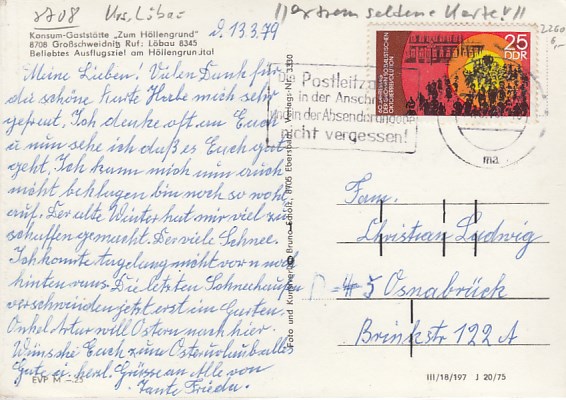 8708 Krs. Löbau
!! extrem seltene Karte !!
Konsum-Gaststätte "Zum Höllengrund"
8708 Großschweidnitz Ruf: Löbau 8345
Beliebtes Ausflugsziel am Höllengrundtal
d. 13.3.79
Meine Lieben! Vielen Dank für
die schöne Karte Habe mich sehr
gefreut. Ich denke oft an Euch
u nun sehe ich daß es Euch gut
geht. Ich kann mich nun auch
nicht beklagen bin noch so wohl
auf. Der alte Winter hat mir viel zu
schaffen gemacht. Der viele Schnee.
Ich konnte nicht vorn noch
hinten raus. Die letzten Schneehaufen
verschwinden jetzt erst im Garten.
Onkel Artur will Ostern nach hier.
Wünsche Euch zum Osterurlaub alles
Gute u. herzl. Grüsse an Alle von
Tante Frieda.
EVP M -.25
Foto und Kunstverlag Bruno Scholz, 8705 Ebersbach, Verlag-Nr. 1330
Die Postleitzahl
in der Anschrift
und in der Absenderangabe
nicht vergessen!
60. JAHRESTAG
DER GROSSEN SOZIALISTISCHEN
OKTOBERREVOLUTION
25
DDR
2260
Fam.
Christian Ludwig
D = 45 Osnabrück
Brinkstr 122 A
III/18/197 J 20/75